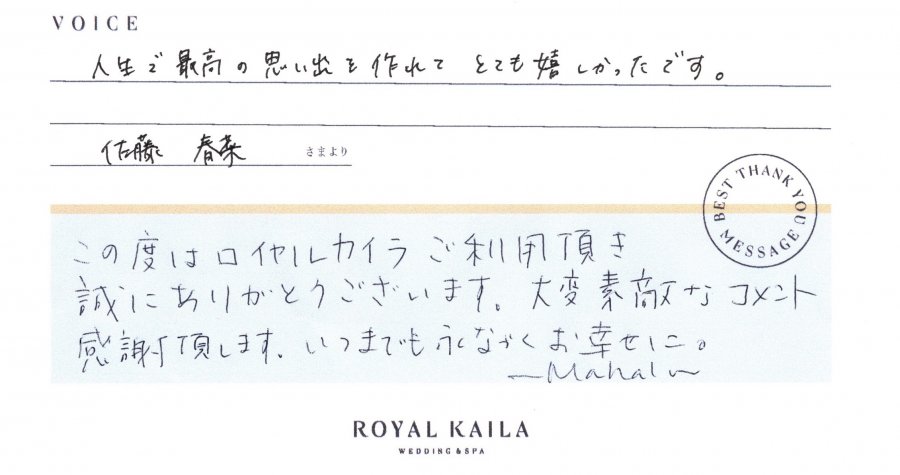 VOICE
人生で最高の思い出を作れて とても嬉しかったです。
佐藤 春菜 さまより
BEST THANK YOU MESSAGE
この度はロイヤルカイラご利用頂き
誠にありがとうございます。大変素敵なコメント
感謝頂します。いつまでも永なかくお幸せに。
ROYAL KAILA
WEDDING & SPA